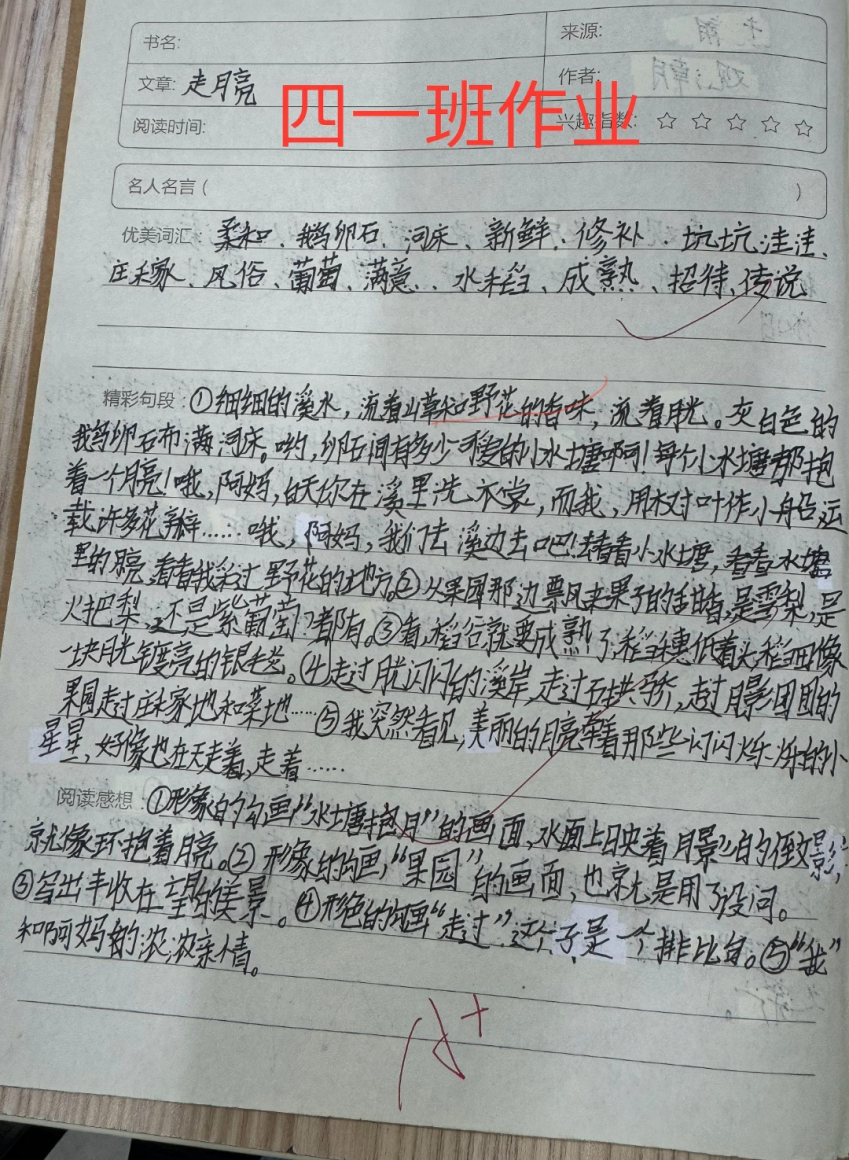 书名:
来源:
文章: 走月亮
作者:
四一班作业
阅读时间:
兴趣指数: ☆ ☆ ☆ ☆ ☆
名人名言 ( )
优美词汇: 柔和、鹅卵石、河床、新鲜、修补、坑坑洼洼、
庄稼、风俗、葡萄、满意、水稻、成熟、招待、传说
精彩句段: ①细细的溪水,流着山草和野花的香味,流着月光。灰白色的
鹅卵石布满河床。哟,卵石间有多少可爱的小水塘啊!每个小水塘都抱
着一个月亮!哦,阿妈,白天你在溪里洗衣裳,而我,用树叶作小船运
载许多花瓣……哦,阿妈,我们去溪边去吧!去看看小水塘,看看水塘
里的月亮,看看我采过野花的地方。②从果园那边飘来果子的甜香,是雪梨,是
火把梨,还是紫葡萄?都有。③看,稻谷就要成熟了,稻穗低着头,稻田像
一块月光镀亮的银毯。④走过月光闪闪的溪岸,走过石拱桥,走过月影团团的
果园走过庄稼地和菜地……⑤我突然看见,美丽的月亮牵着那些闪闪烁烁的小
星星,好像也在天走着,走着……
阅读感想: ①形象的勾画“水塘抱月”的画面,水面上映着月影的倒影,
就像环抱着月亮。②形象的勾画“果园”的画面,也就是用了设问。
③写出丰收在望的美景。④形色的勾画“走过”这个句子是一个排比句。⑤“我”
和阿妈的浓浓亲情。
A+